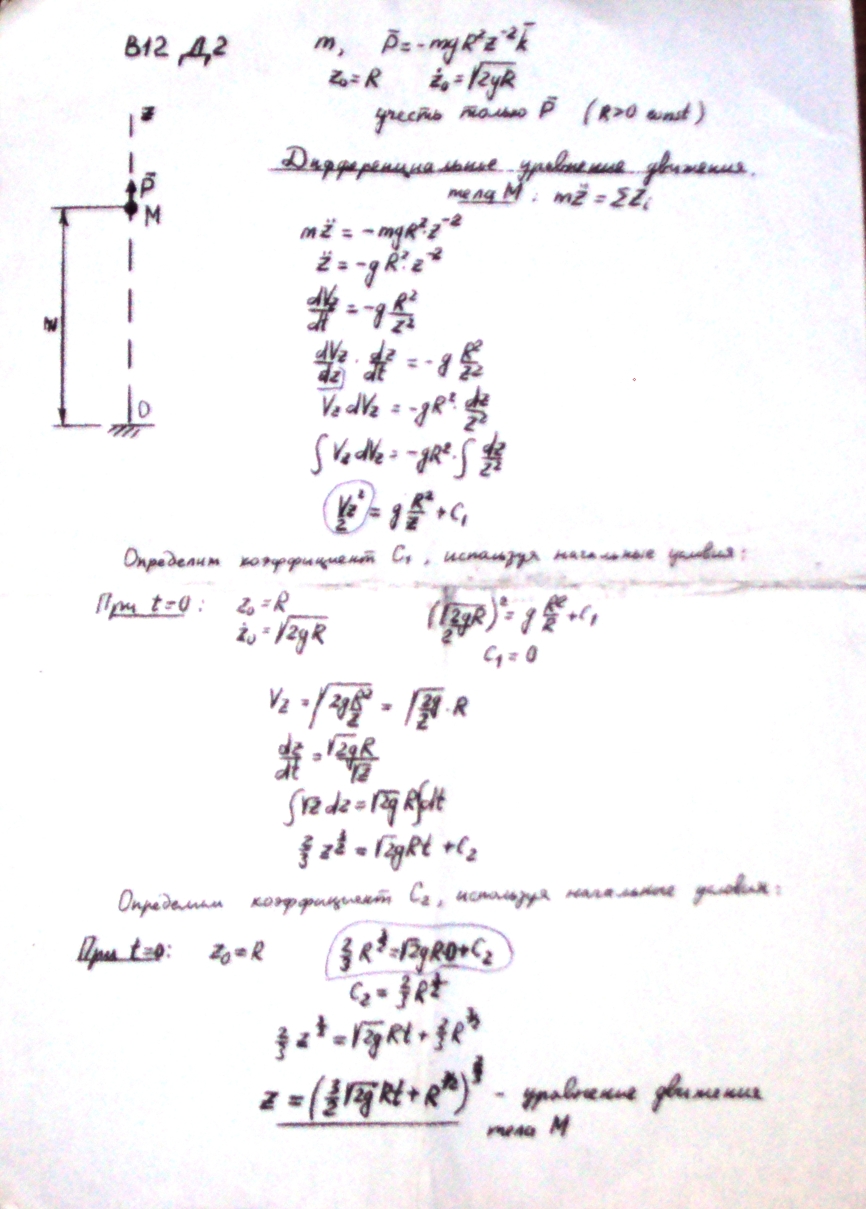 В12 Д2
m, P̄ = -mgR²z⁻²k̄
z₀ = R ż₀ = √2gR
учесть только P̄ (R>0 const)
z
P̄
M
z
O
Дифференциальное уравнение движения
тела M: mz̈ = ΣZᵢ
mz̈ = -mgR²·z⁻²
z̈ = -gR²·z⁻²
dVz/dt = -g R²/z²
dVz/dz · dz/dt = -g R²/z²
Vz dVz = -gR² · dz/z²
∫ Vz dVz = -gR² · ∫ dz/z²
Vz²/2 = g R²/z + C₁
Определим коэффициент C₁, используя начальные условия:
При t=0: z₀ = R (√2gR)²/2 = g R²/R + C₁
ż₀ = √2gR
C₁ = 0
Vz = √(2gR²/z) = √(2g/z) · R
dz/dt = √2g R/√z
∫√z dz = √2g R∫dt
2/3 z^(3/2) = √2g Rt + C₂
Определим коэффициент C₂, используя начальные условия:
При t=0: z₀ = R 2/3 R^(3/2) = √2g R0 + C₂
C₂ = 2/3 R^(3/2)
2/3 z^(3/2) = √2g Rt + 2/3 R^(3/2)
z = (3/2 √2g Rt + R^(3/2))^(2/3) - уравнение движения
тела M